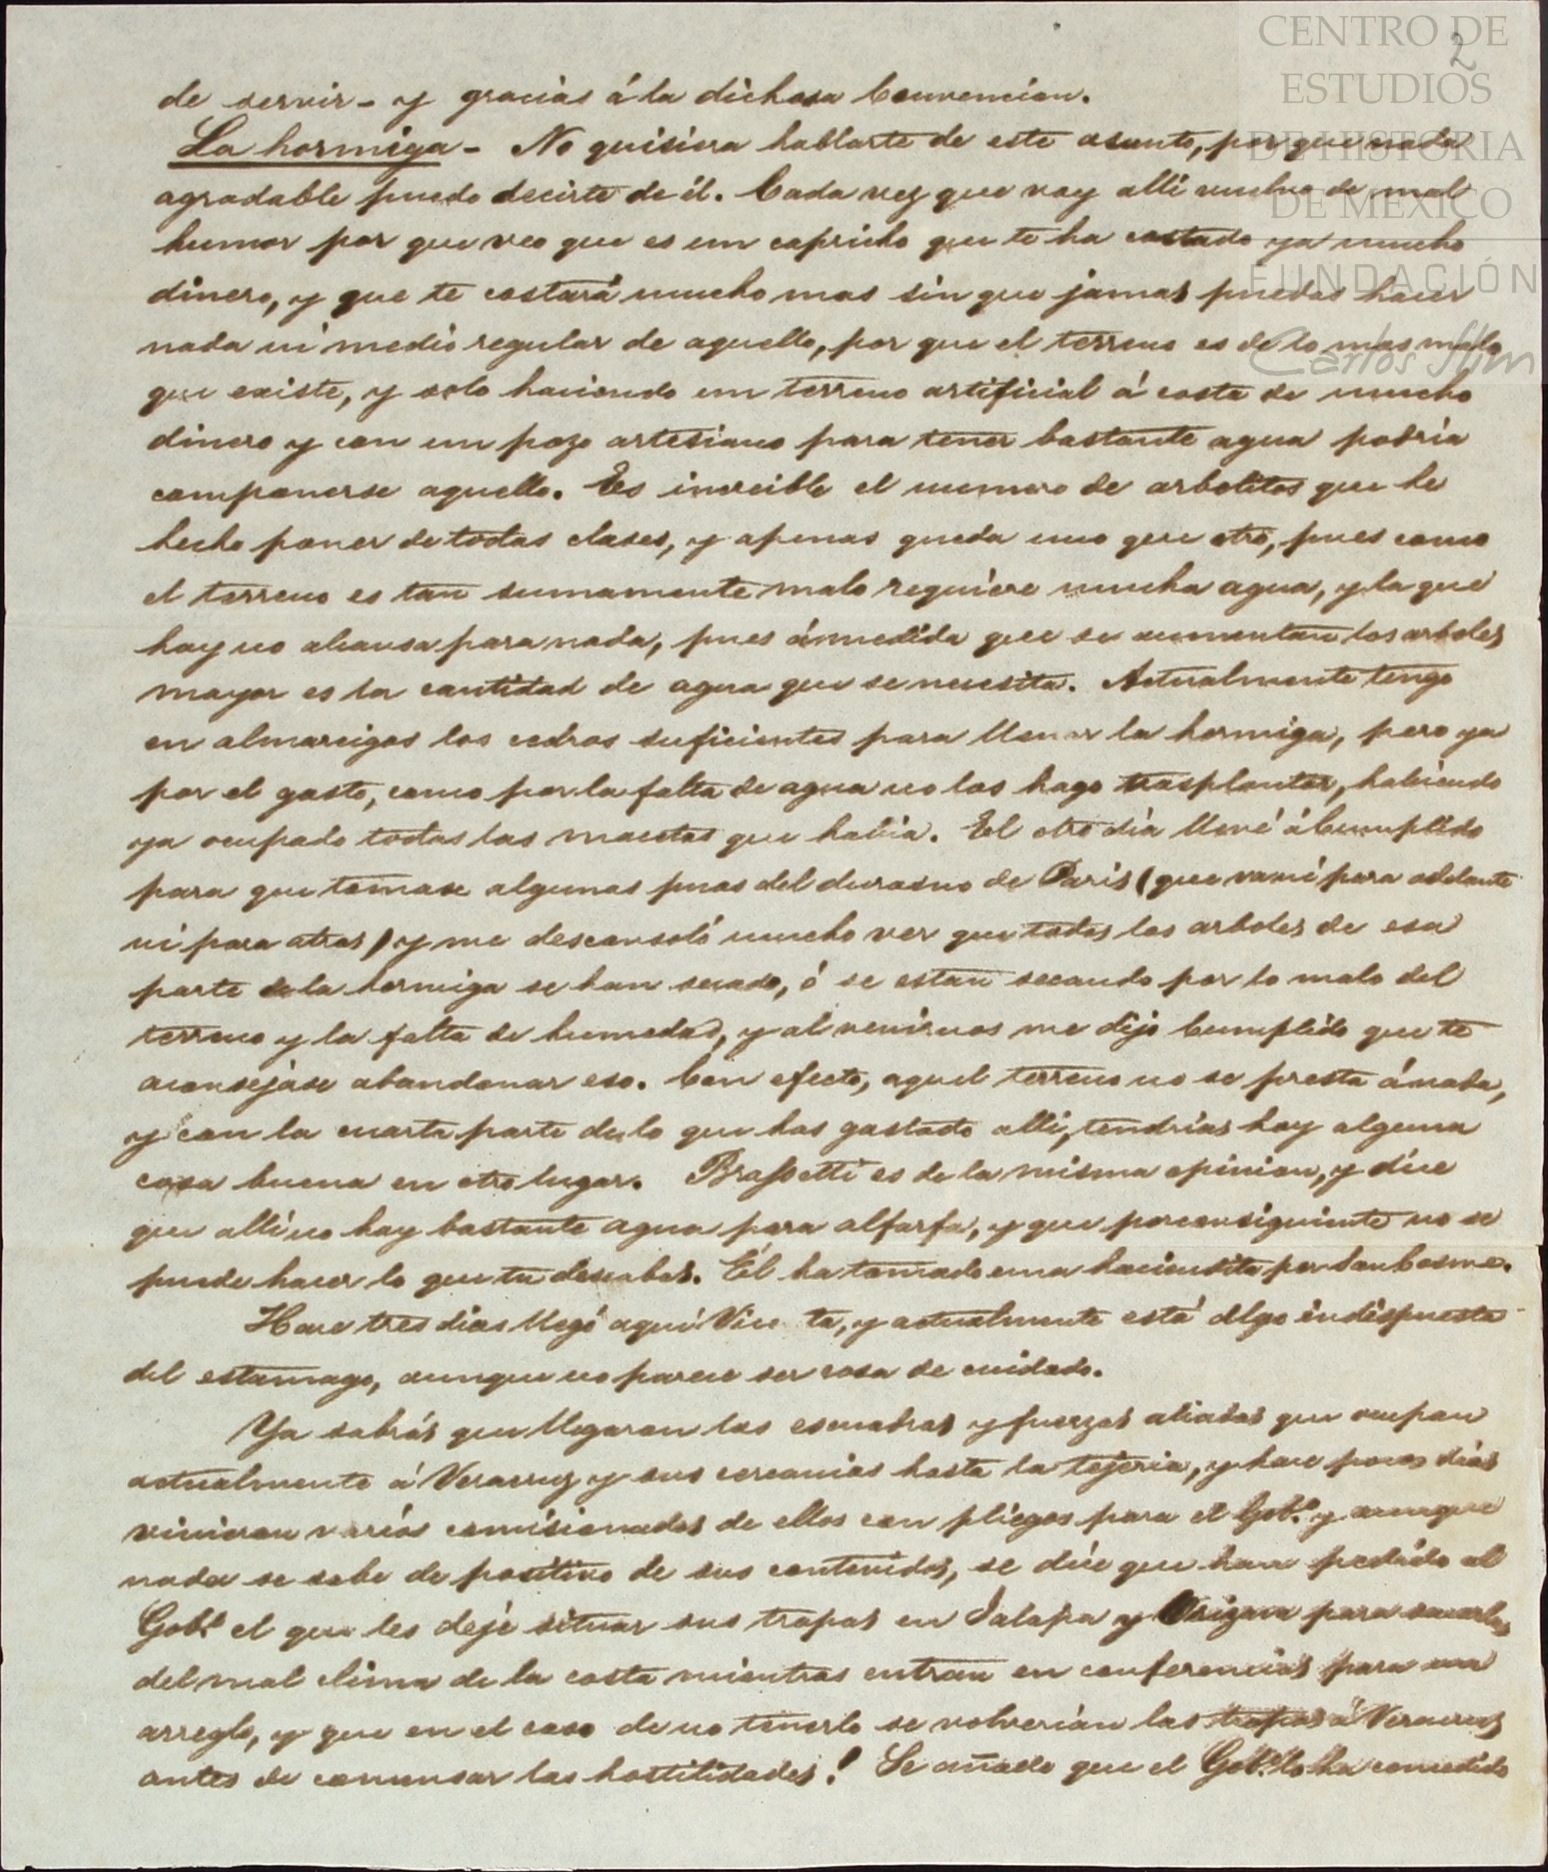 CENTRO DE
ESTUDIOS
DE HISTORIA
DE MÉXICO
FUNDACIÓN
Carlos Slim
2
de servir - y gracias á la dichosa Convencion.
La hormiga - No quisiera hablarte de este asunto, por que nada
agradable puedo decirte de él. Cada vez que voy alli vuelvo de mal
humor por que veo que es un capricho que te ha costado ya mucho
dinero, y que te costará mucho mas sin que jamas puedas hacer
nada ni medio regular de aquello, por que el terreno es de lo mas malo
que existe, y solo haciendo un terreno artificial á costa de mucho
dinero y con un pozo artesiano para tener bastante agua podria
componerse aquello. Es increible el numero de arbolitos que he
hecho poner de todas clases, y apenas queda uno que otro, pues como
el terreno es tan sumamente malo requiere mucha agua, y la que
hay no alcansa para nada, pues ámedida que se aumentan los arboles
mayor es la cantidad de agua que se necesita. Actualmente tengo
en almarcigos los cedros suficientes para llenar la hormiga, pero ya
por el gasto, como por la falta de agua no los hago trasplantar, habiendo
ya ocupado todas las macetas que habia. El otro dia llevé á Cumplido
para que tomase algunas puas del durasno de Paris (que va ni para adelante
ni para atras) y me desconsoló mucho ver que todos los arboles de esa
parte de la hormiga se han secado, ó se estan secando por lo malo del
terreno y la falta de humedad, y al venirnos me dijo Cumplido que te
aconsejase abandonar eso. Con efecto, aquel terreno no se presta ánada,
y con la cuarta parte de lo que has gastado alli, tendrias hoy alguna
cosa buena en otro lugar. Brassetti es de la misma opinion, y dice
que alli no hay bastante agua para alfarfa, y que porconsiguiente no se
puede hacer lo que tu deseabas. Él ha tomado una haciendita por San Cosme.
Hace tres dias llegó aqui Vice ta, y actualmente está algo indispuesta
del estomago, aunque no parece ser cosa de cuidado.
Ya sabrás que llegaron las escuadras y fuerzas aliadas que ocupan
actualmente á Veracruz y sus cercanias hasta la tejeria, y hace pocos dias
vinieron varios comisionados de ellos con pliegos para el Gob.o y aunque
nada se sabe de positivo de sus contenidos, se dice que han pedido al
Gob.o el que les deje situar sus tropas en Jalapa y Orizava para sacarlas
del mal clima de la costa mientras entran en conferencias para un
arreglo, y que en el caso de no tenerlo se volverian las tropas á Veracruz
antes de comensar las hostilidades! Se añade que el Gob.o lo ha concedido